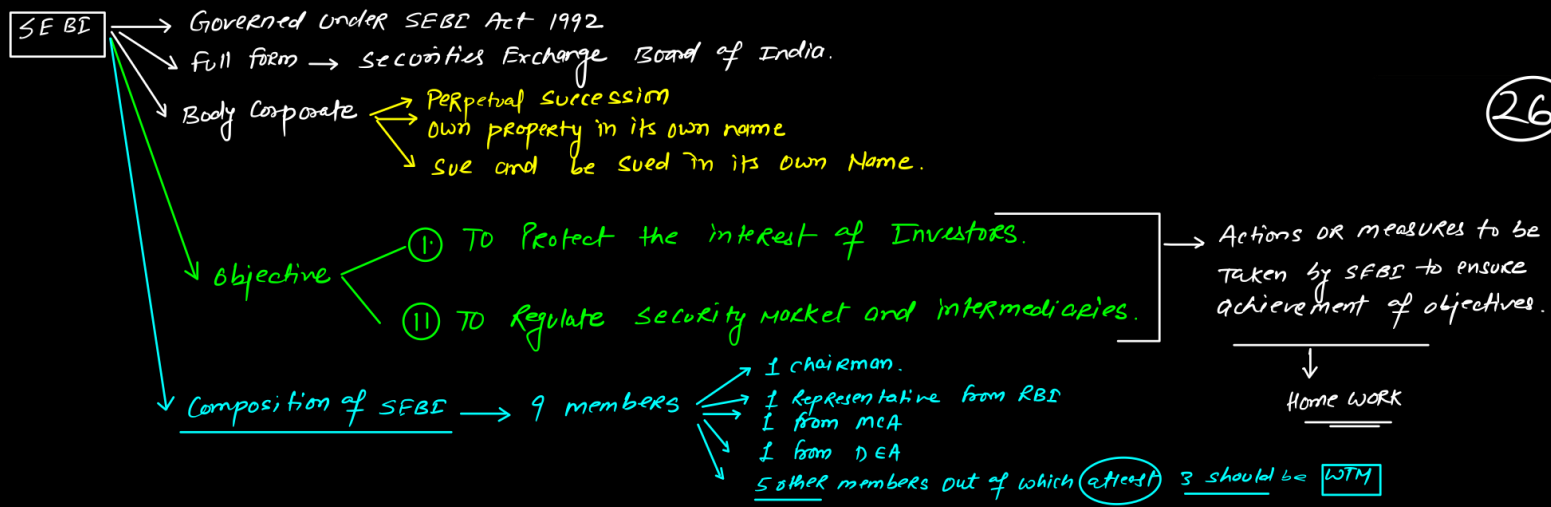 SEBI → Governed under SEBI Act 1992
Full form → Securities Exchange Board of India.
Body Corporate
Perpetual Succession
own property in its own name
Sue and be sued in its own Name.
26
Objective
(I) TO Protect the interest of Investors.
(II) TO Regulate security market and intermediaries.
→ Actions or measures to be
taken by SEBI to ensure
achievement of objectives.
↓
Home work
Composition of SEBI → 9 members
1 chairman.
1 Representative from RBI
1 from MCA
1 from DEA
5 other members out of which atleast 3 should be WTM